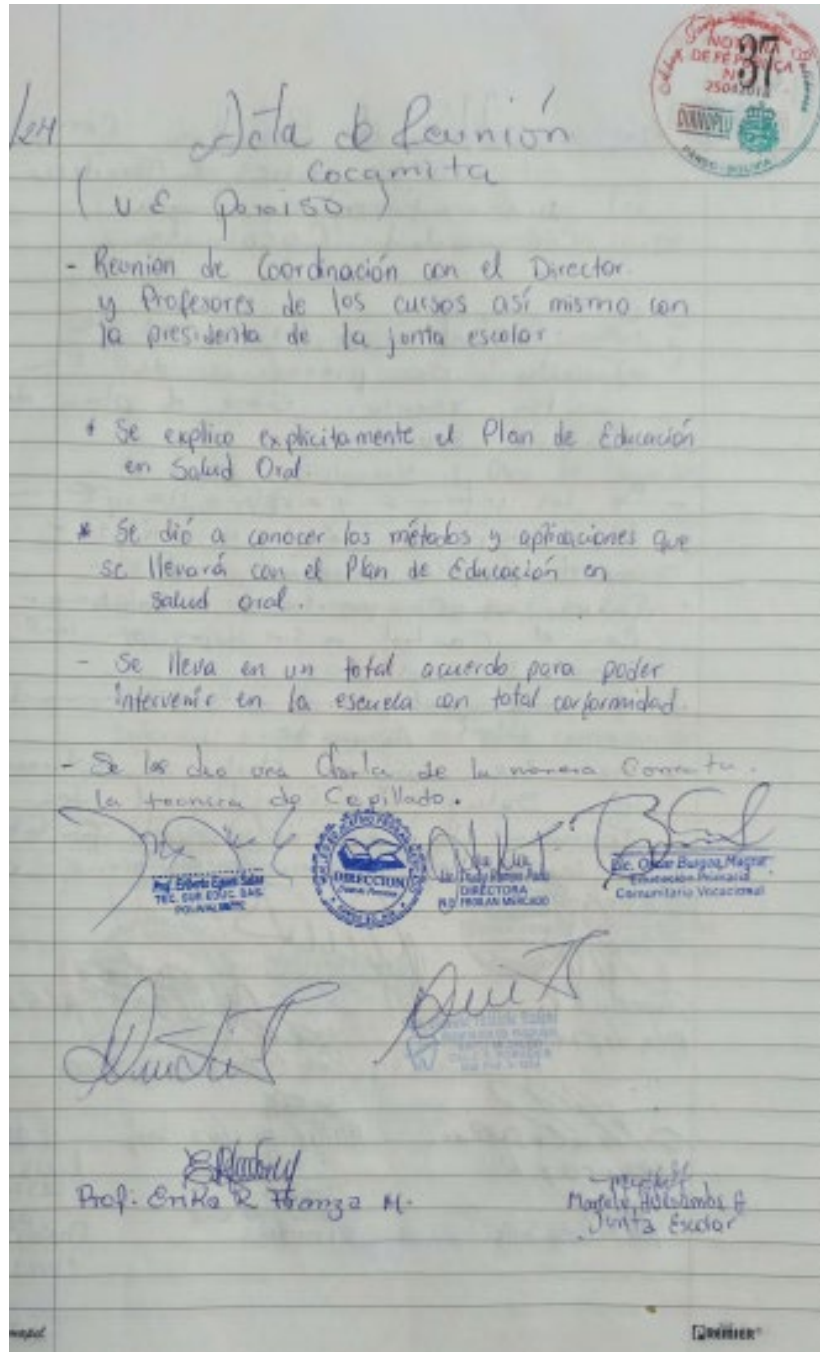 NOTARIA
DE FÉ PÚBLICA
37
DIRNOPLU
PANDO - BOLIVIA
/24
Acta de Reunión
Cocamita
(U E Paraiso)
- Reunion de Coordinación con el Director
y Profesores de los cursos así mismo con
la presidenta de la junta escolar.
* Se explico explicitamente el Plan de Educación
en Salud Oral.
* Se dió a conocer los métodos y aplicaciones que
se llevará con el Plan de Educación en
salud oral.
- Se lleva en un total acuerdo para poder
intervenir en la escuela con total conformidad.
- Se les dio una Charla de la manera
la tecnica de Cepillado.
DIRECCION
DIRECTORA
FROILAN MERCADO
Lic. Oscar Burgoa
Educación Primaria
Comunitaria Vocacional
Prof. Erika R M.
Junta Escolar
PREMIER